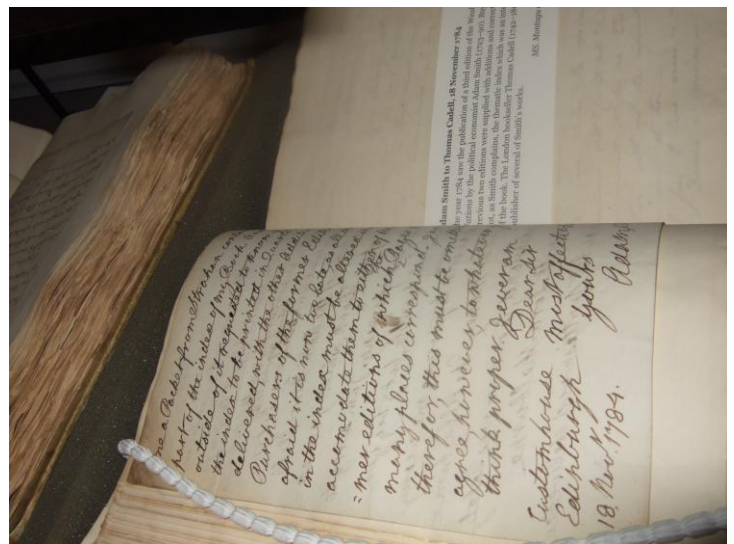 dam Smith to Thomas Cadell, 18 November 1784
he year 1784 saw the publication of a third edition of the
utions by the political economist Adam Smith (1723–90).
revious two editions were supplied with additions and
ot, as Smith complains, the thematic index which was an
f the book. The London bookseller Thomas Cadell (1742–
ublisher of several of Smith's works.
MS. Montagu
me a Packet from Strahan
part of the index of my Book.
outside of it requested to know
the index to be printed in
delivered, with the other
Purchasers of the former
afraid it is now too late, as
in the index must be altered
accomodate them to either of
=mer editions of which
many places correspond.
therefor, this must be
agree, however, to whatever
think proper. I ever am
Dear Sir
Customhouse Most affect
Edinburgh yours
18. Nov. 1784. Adam